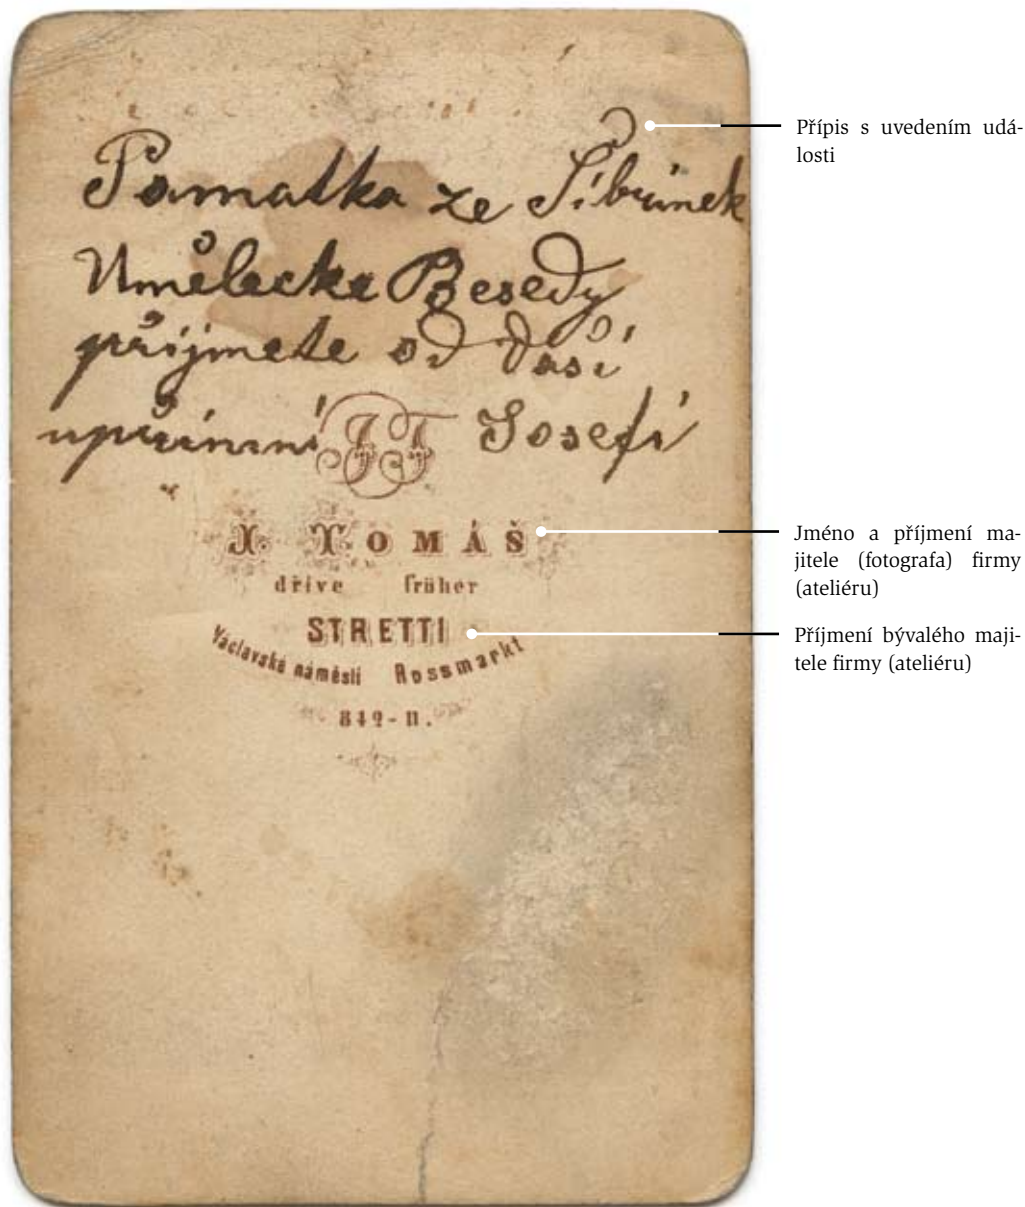 Pamatka ze Šibřinek
Umělecke Besedy
přijmete od Vaší
upřimní Josefi
JT
J. TOMÁŠ
dříve früher
STRETTI
Václavské náměstí Rossmarkt
842-II.
Přípis s uvedením udá-
losti
Jméno a příjmení ma-
jitele (fotografa) firmy
(ateliéru)
Příjmení bývalého maji-
tele firmy (ateliéru)